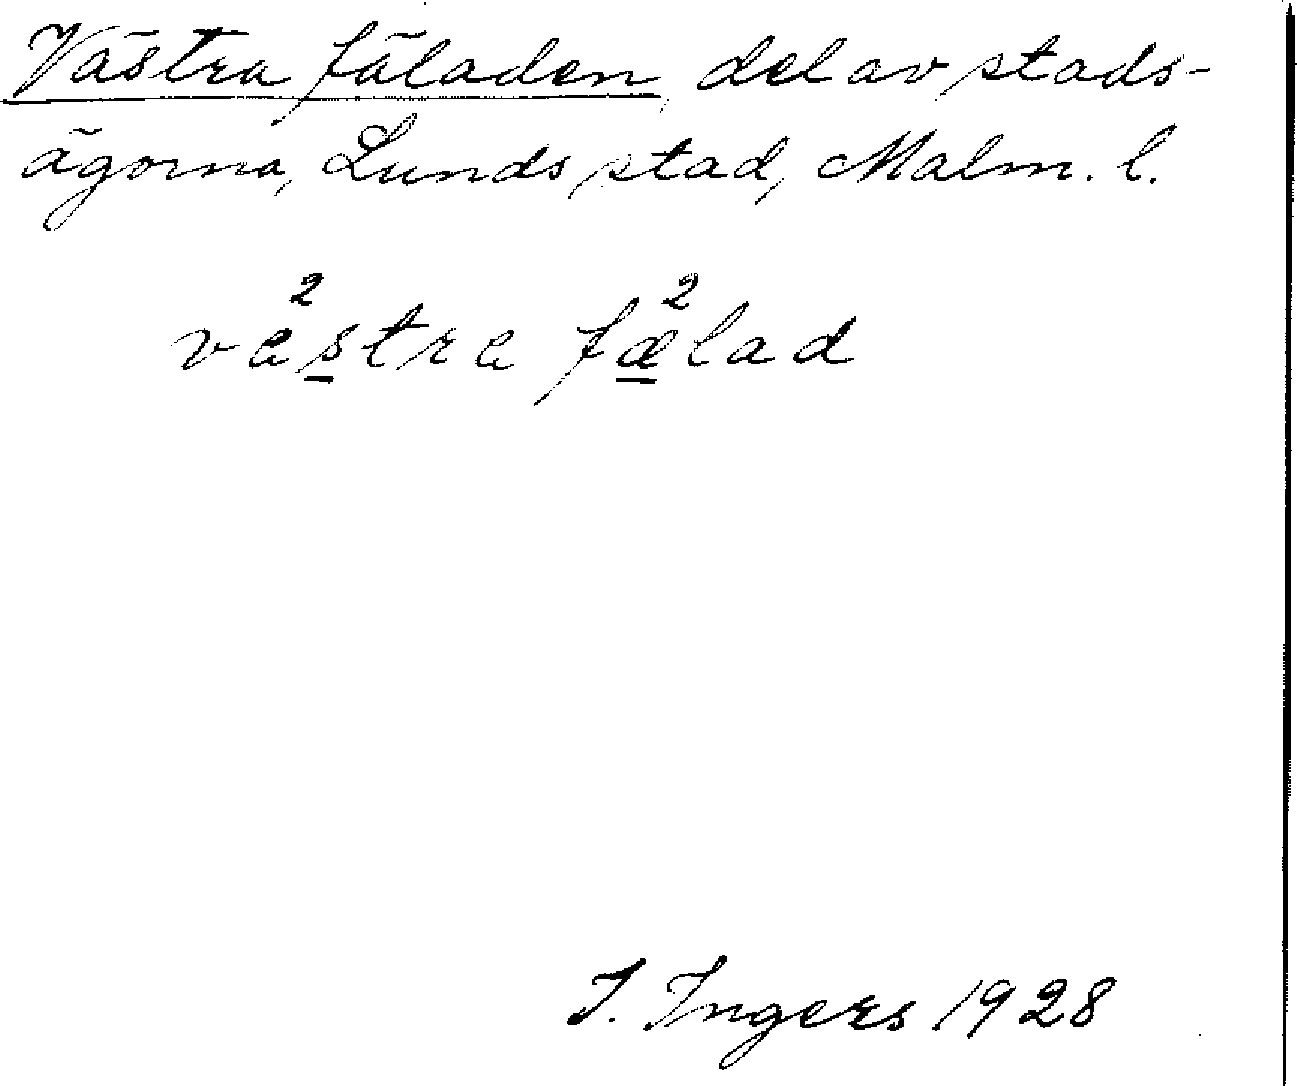 Västra fäladen, del av stads-
ägorna, Lunds stad, Malm. l.
västra fælad
I. Ingers 1928